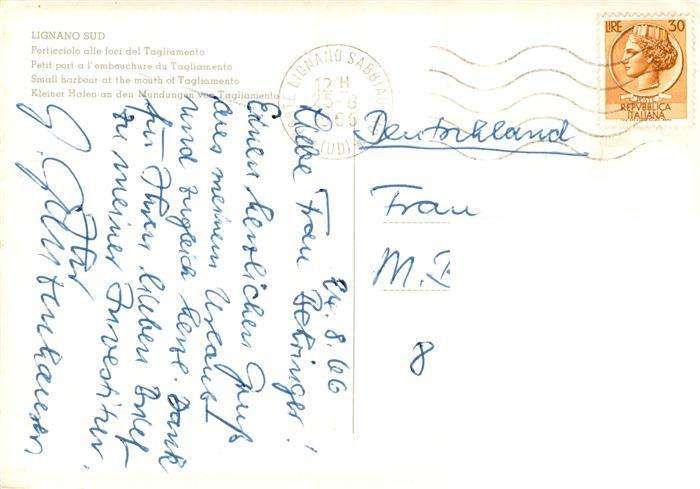 LIGNANO SUD
Porticciolo alle foci del Tagliamento
Petit port a l'embouchure du Tagliamento
Small harbour at the mouth of Tagliamento
Kleiner Hafen an den Mundungen von Tagliamento
LIGNANO SABBIA
12 H
(UD)
LIRE 30
POSTE
REPVBBLICA
ITALIANA
24.8.66
Liebe Frau
Einen herzlichen Gruß
aus meinem Urlaub
und zugleich herzl. Dank
für Ihren lieben Brief
zu meiner Investitur.
Ihr
G.
Deutschland
Frau
M. B
8